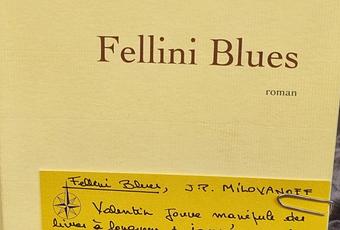 Fellini Blues
roman
Fellini Blues, J.P. MILOVANOFF
Valentin Jouve manipule des
livres à longueur